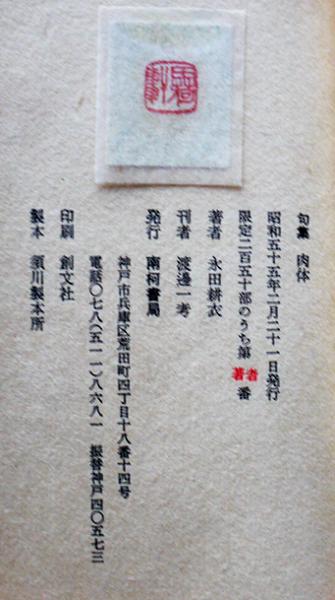 句集 肉体
昭和五十五年二月二十一日発行
限定二百五十部のうち第 著者 番
著者 永田耕衣
刊者 渡邊一考
発行 南柯書局
神戸市兵庫区荒田町四丁目十八番十四号
電話〇七八(五一一)八六八一 振替神戸四〇五七三
印刷 創文社
製本 須川製本所